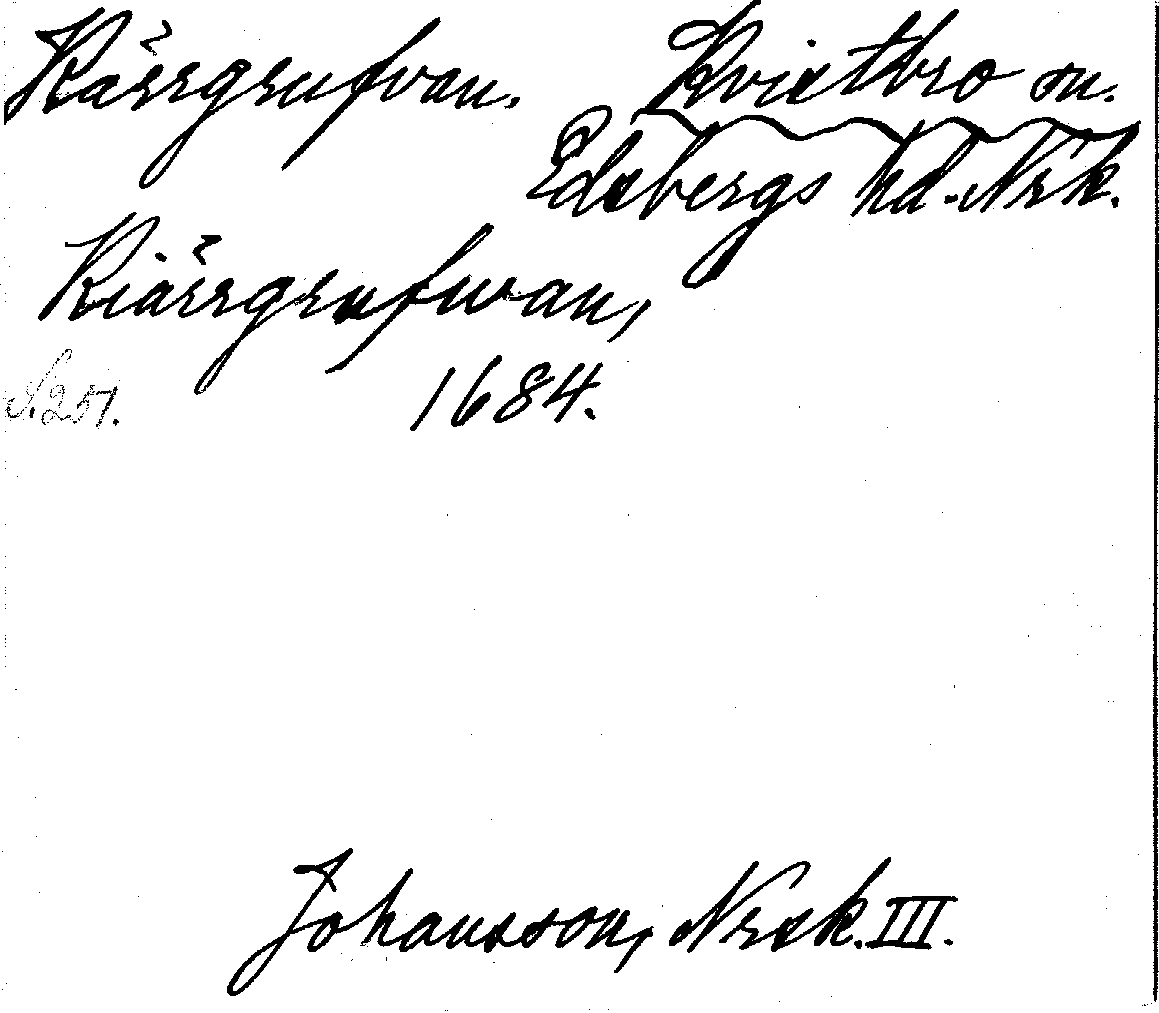 Kärrgrufvan. Kvistbro sn.
Edsbergs hd. Nrk.
Kiärrgrufwan,
S. 251. 1684.
Johansson, Nrsk. III.